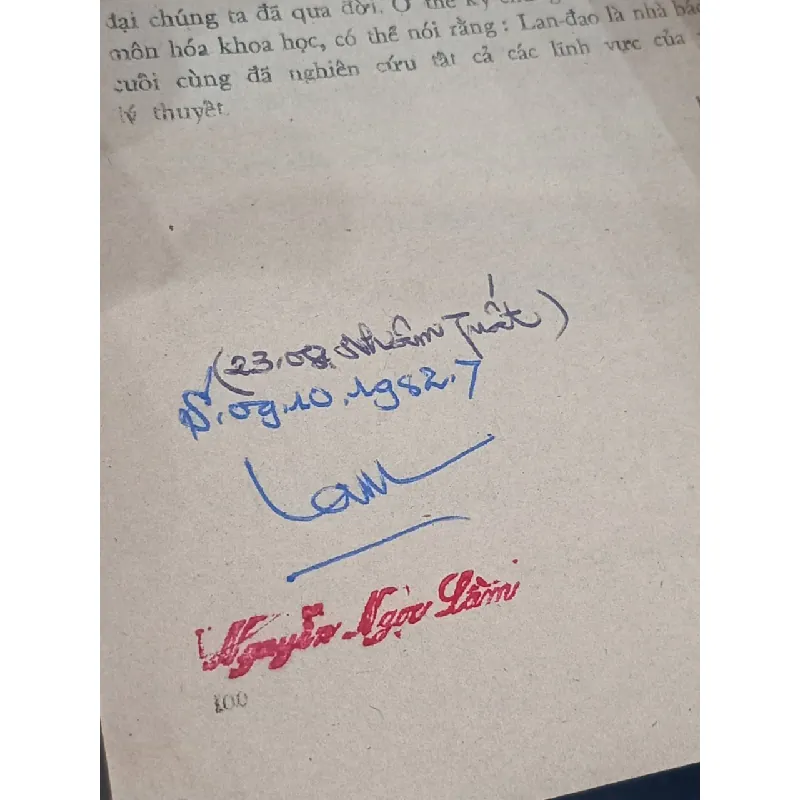 đại chúng ta đã qua đời. Ở thế kỷ
môn hóa khoa học, có thể nói rằng : Lan-đao là nhà bác
cuối cùng đã nghiên cứu tất cả các lĩnh vực của
lý thuyết.
(23.08. Nhâm Tuất)
09.10.1982.7
Lam
Nguyễn Ngọc Lâm
100